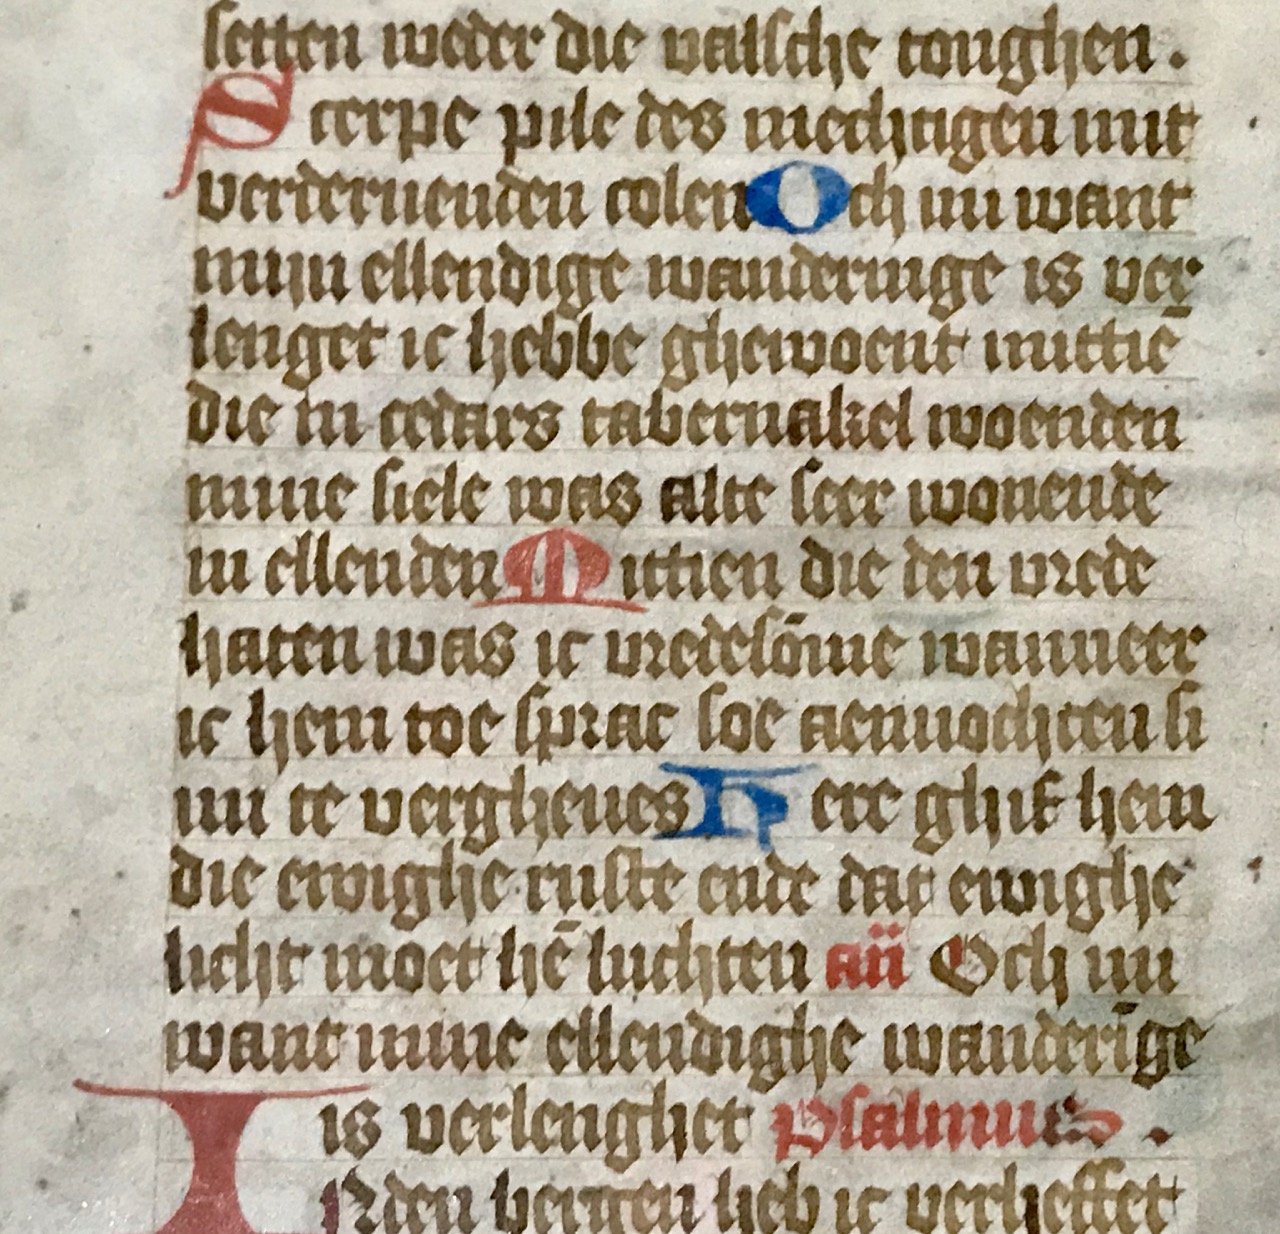 setten weder die valsche tonghen.
Scerpe pile des mechtigen mit
verdernenden colen Och mi want
mijn ellendige wanderinge is ver
lenget ic hebbe ghewoent mittiē
die in cedars tabernakel woenden
mine siele was alte seer wonende
in ellenden Mittien die den vrede
haten was ic vredesōme wanneer
ic hem toe sprac soe aenvochten si
mi te vergheues Here ghif hem
die ewighe ruste ende dat ewighe
licht moet hē luchten an̄ Och mi
want mine ellendighe wanderīge
is verlenghet Psalmus.
INden bergen heb ic verheffet